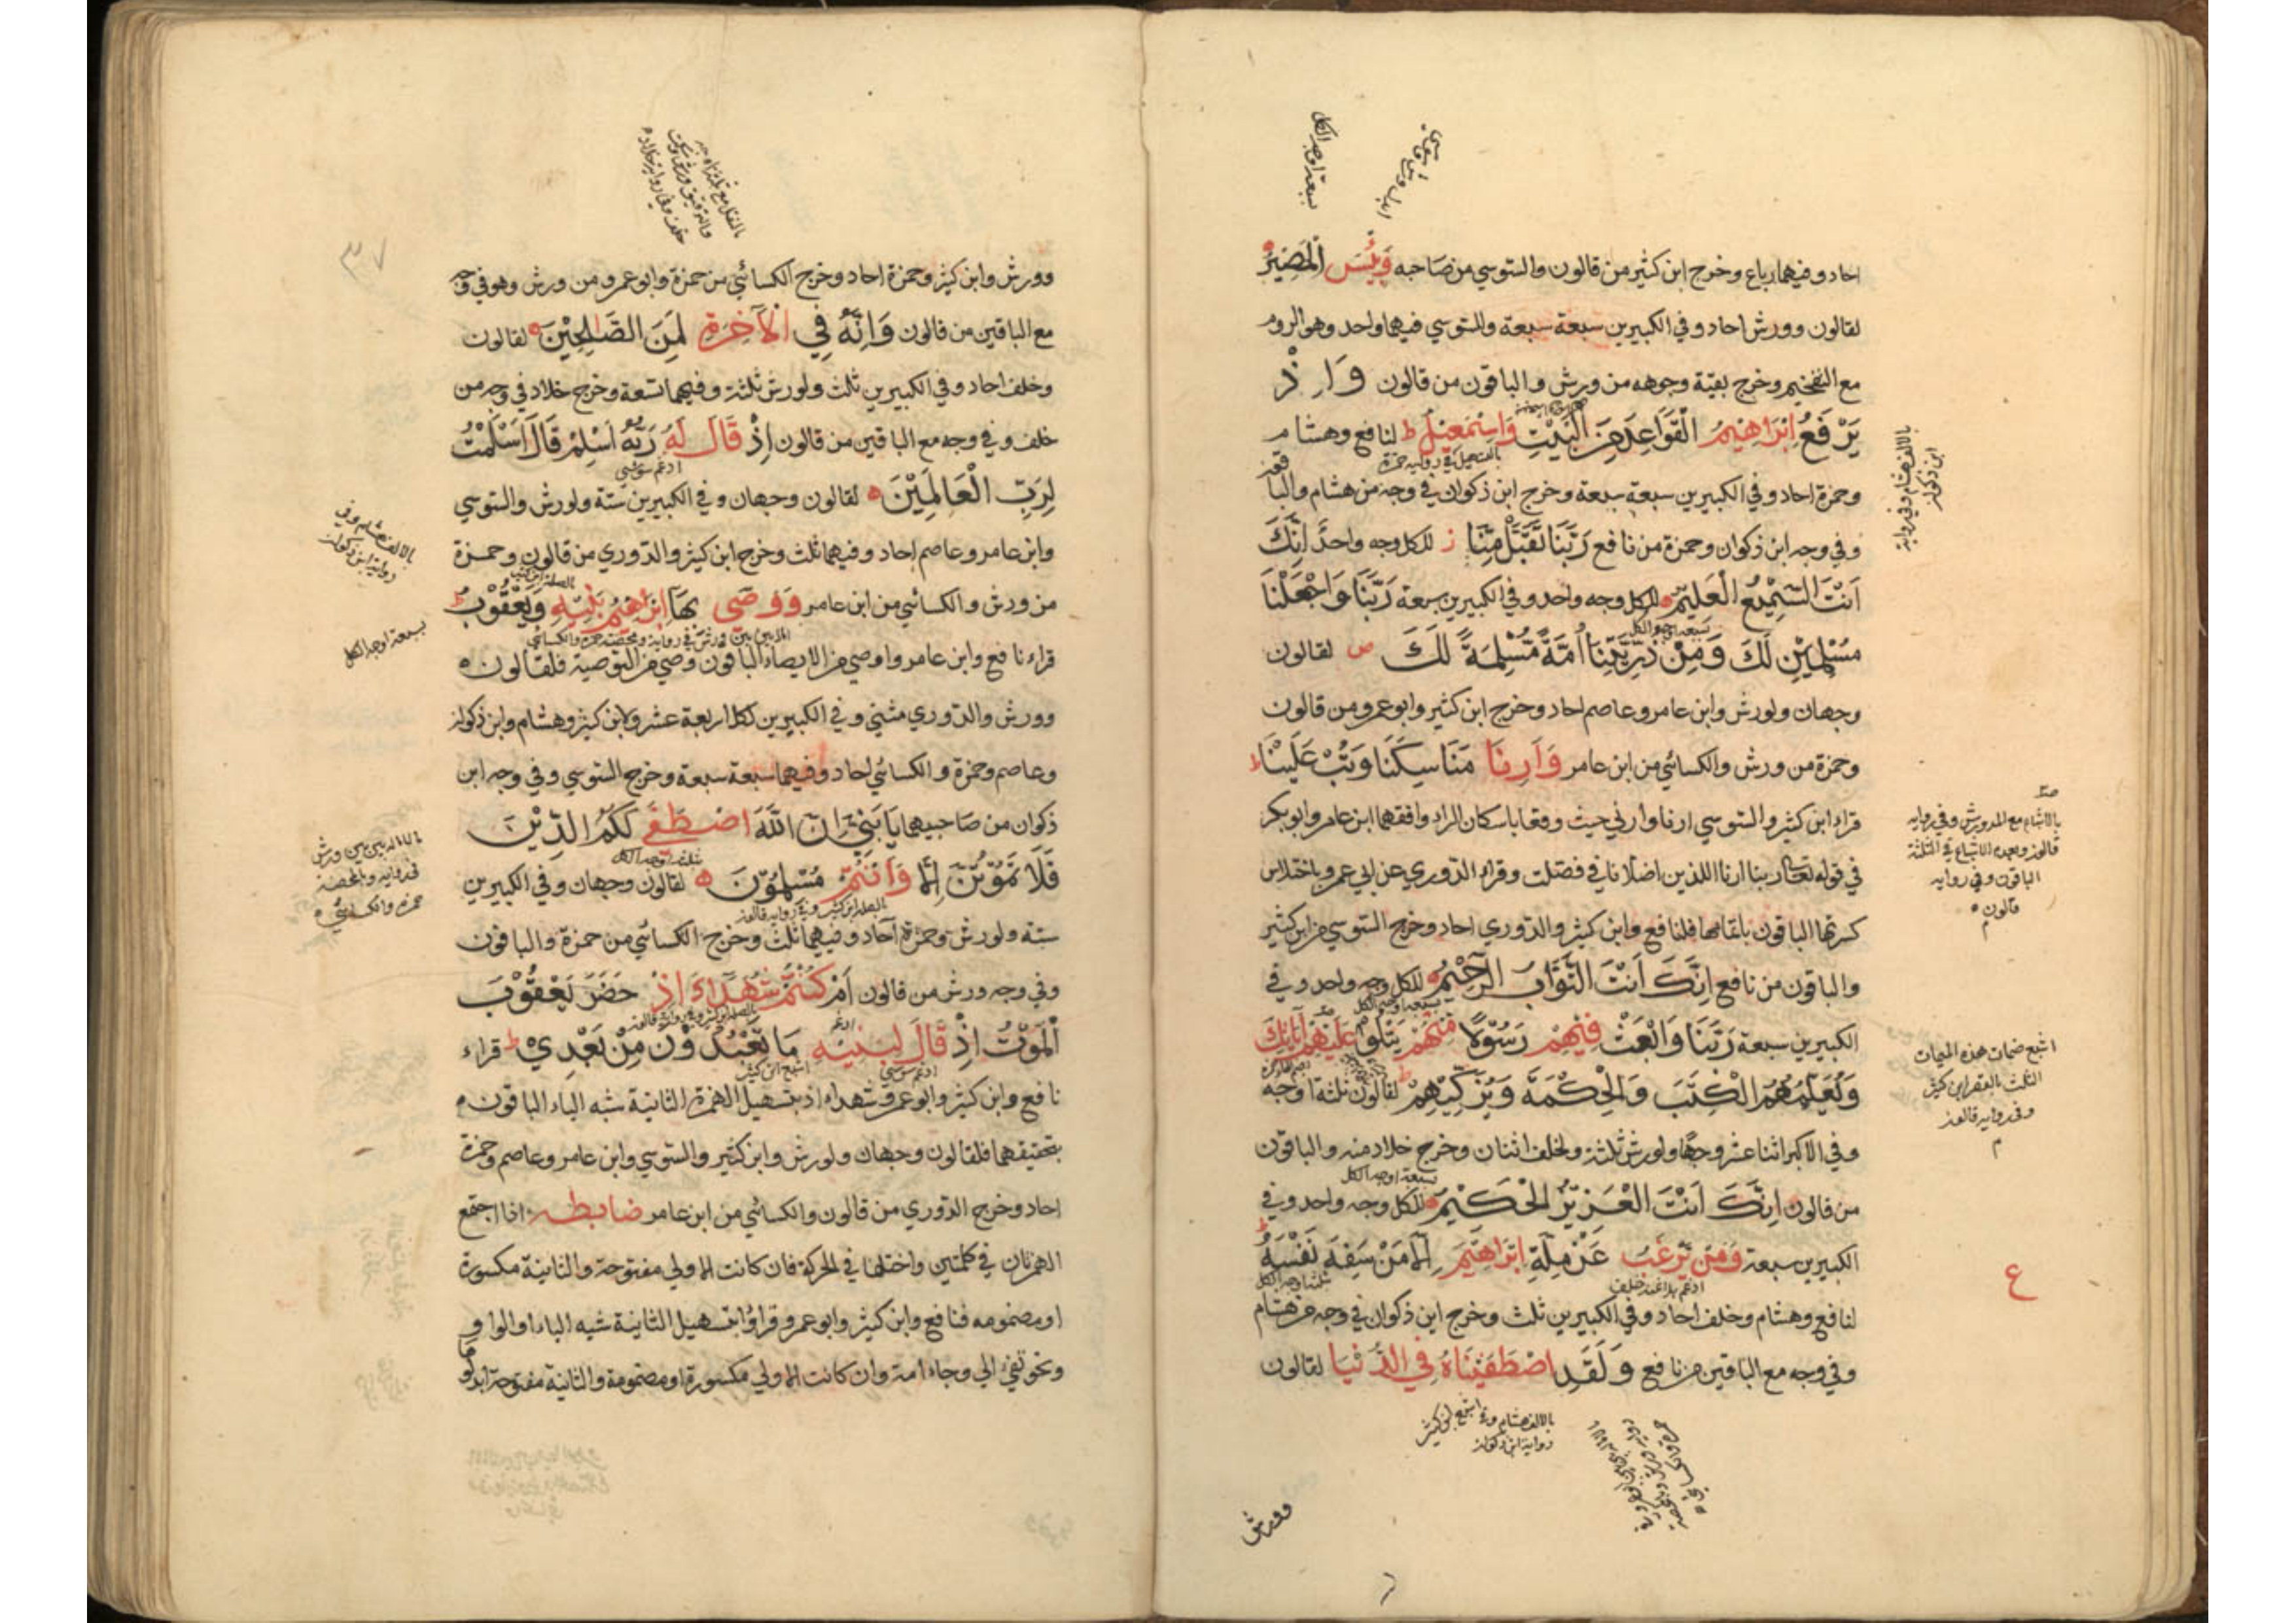 احاد وفيهما رباع وخرج ابن كثير من قالون والسوسي من صاحبه وَبِئْسَ الْمَصِيرُ
لقالون وورش احاد وفي الكبيرين سبعة سبعة وللسوسي فيهما واحد وهو الروم
مع التفخيم وخرج بقية وجوهه من ورش والباقون من قالون وَاِذْ
يَرْفَعُ اِبْرَاهِيْمُ الْقَوَاعِدَ مِنَ الْبَيْتِ وَاِسْمٰعِيْلُ ط لنافع وهشام
وحمزة احاد وفي الكبيرين سبعة سبعة وخرج ابن ذكوان في وجه من هشام والباقون
وفي وجه ابن ذكوان وحمزة من نافع رَبَّنَا تَقَبَّلْ مِنَّا ز للكل وجه واحد اِنَّكَ
اَنْتَ السَّمِيْعُ الْعَلِيْمُ للكل وجه واحد وفي الكبيرين سبعة رَبَّنَا وَاجْعَلْنَا
مُسْلِمَيْنِ لَكَ وَمِنْ ذُرِّيَّتِنَا اُمَّةً مُسْلِمَةً لَكَ ص لقالون
وجهان ولورش وابن عامر وعاصم احاد وخرج ابن كثير وابو عمرو من قالون
وحمزة من ورش والكسائي من ابن عامر وَاَرِنَا مَنَاسِكَنَا وَتُبْ عَلَيْنَا ط
قراء ابن كثير والسوسي ارنا وارني حيث وقعا باسكان الراء وافقهما ابن عامر وابو بكر
في قوله تعالى ربنا ارنا اللذين اضلانا في فصلت وقراء الدوري عن ابي عمرو باختلاس
كسرتها الباقون باتمامها فلنافع وابن كثير والدوري احاد وخرج السوسي من ابن كثير
والباقون من نافع اِنَّكَ اَنْتَ التَّوَّابُ الرَّحِيْمُ للكل وجه واحد وفي
الكبيرين سبعة رَبَّنَا وَابْعَثْ فِيْهِمْ رَسُوْلًا مِنْهُمْ يَتْلُوْا عَلَيْهِمْ اٰيَاتِكَ
وَيُعَلِّمُهُمُ الْكِتٰبَ وَالْحِكْمَةَ وَيُزَكِّيْهِمْ ط لقالون ثلثة اوجه
وفي الاكبر اثنا عشر وجها ولورش ثلثة ولخلف اثنان وخرج خلاد منه والباقون
من قالون اِنَّكَ اَنْتَ الْعَزِيْزُ الْحَكِيْمُ للكل وجه واحد وفي
الكبيرين سبعة وَمَنْ يَرْغَبُ عَنْ مِلَّةِ اِبْرَاهِيْمَ اِلَّا مَنْ سَفِهَ نَفْسَهُ ط
لنافع وهشام وخلف احاد وفي الكبيرين ثلث وخرج ابن ذكوان في وجه من هشام
وفي وجه مع الباقين من نافع وَلَقَدِ اصْطَفَيْنَاهُ فِي الدُّنْيَا لقالون
سبعة اوجه للكل
بالالف هشام وفي رواية
ابن ذكوان
بالاشباع مع المد ورش وفي رواية
قالون وبعدم الاشباع في الثلثة
الباقون وفي رواية
قالون
اشبع ضمات هذه الميمات
الثلث بالقصر ابن كثير
وفي رواية قالون
ع
بالالف هشام وفي
رواية ابن ذكوان
اشبع ابن كثير
وورش
٣٧
وورش وابن كثير وحمزة احاد وخرج الكسائي من حمزة وابو عمرو من ورش وهو في وجه
مع الباقين من قالون وَاِنَّهُ فِي الْاٰخِرَةِ لَمِنَ الصَّالِحِيْنَ لقالون
وخلف احاد وفي الكبيرين ثلث ولورش ثلثة وفيهما تسعة وخرج خلاد في وجه من
خلف وفي وجه مع الباقين من قالون اِذْ قَالَ لَهُ رَبُّهُ اَسْلِمْ قَالَ اَسْلَمْتُ
لِرَبِّ الْعَالَمِيْنَ لقالون وجهان وفي الكبيرين ستة ولورش والسوسي
وابن عامر وعاصم احاد وفيهما ثلث وخرج ابن كثير والدوري من قالون وحمزة
من ورش والكسائي من ابن عامر وَوَصّٰى بِهَا اِبْرَاهِيْمُ بَنِيْهِ وَيَعْقُوْبُ ط
قراء نافع وابن عامر واوصى من الايصاء الباقون ووصى من التوصية فلقالون
وورش والدوري مثنى وفي الكبيرين لكل اربعة عشر ولابن كثير وهشام وابن ذكوان
وعاصم وحمزة والكسائي احاد وفيهما سبعة سبعة وخرج السوسي وفي وجه ابن
ذكوان من صاحبيهما يَا بَنِيَّ اِنَّ اللّٰهَ اصْطَفٰى لَكُمُ الدِّيْنَ
فَلَا تَمُوْتُنَّ اِلَّا وَاَنْتُمْ مُسْلِمُوْنَ لقالون وجهان وفي الكبيرين
ستة ولورش وحمزة احاد وفيهما ثلث وخرج الكسائي من حمزة والباقون
وفي وجه ورش من قالون اَمْ كُنْتُمْ شُهَدَاءَ اِذْ حَضَرَ يَعْقُوْبَ
الْمَوْتُ اِذْ قَالَ لِبَنِيْهِ مَا تَعْبُدُوْنَ مِنْ بَعْدِيْ ط قراء
نافع وابن كثير وابو عمرو شهداء اذ بتسهيل الهمزة الثانية شبه الياء الباقون
بتحقيقهما فلقالون وجهان ولورش وابن كثير والسوسي وابن عامر وعاصم وحمزة
احاد وخرج الدوري من قالون والكسائي من ابن عامر ضابطه اذا اجتمع
الهمزتان في كلمتين واختلفا في الحركة فان كانت الاولى مفتوحة والثانية مكسورة
او مضمومة فنافع وابن كثير وابو عمرو قراؤا بتسهيل الثانية شبه الياء او الواو
ونحو تفيء الى وجاء امة وان كانت الاولى مكسورة او مضمومة والثانية مفتوحة ابدلوا
بالالف هشام وفي
رواية ابن ذكوان
سبعة اوجه للكل
بالامالة بين بين ورش
في رواية والمحضة
حمزة والكسائي